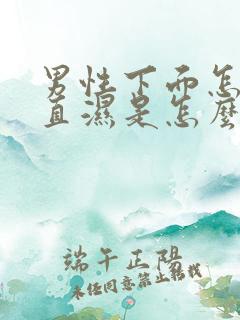 男性下面怎
直濕是怎麼
端午正陽
未经同意禁止转载